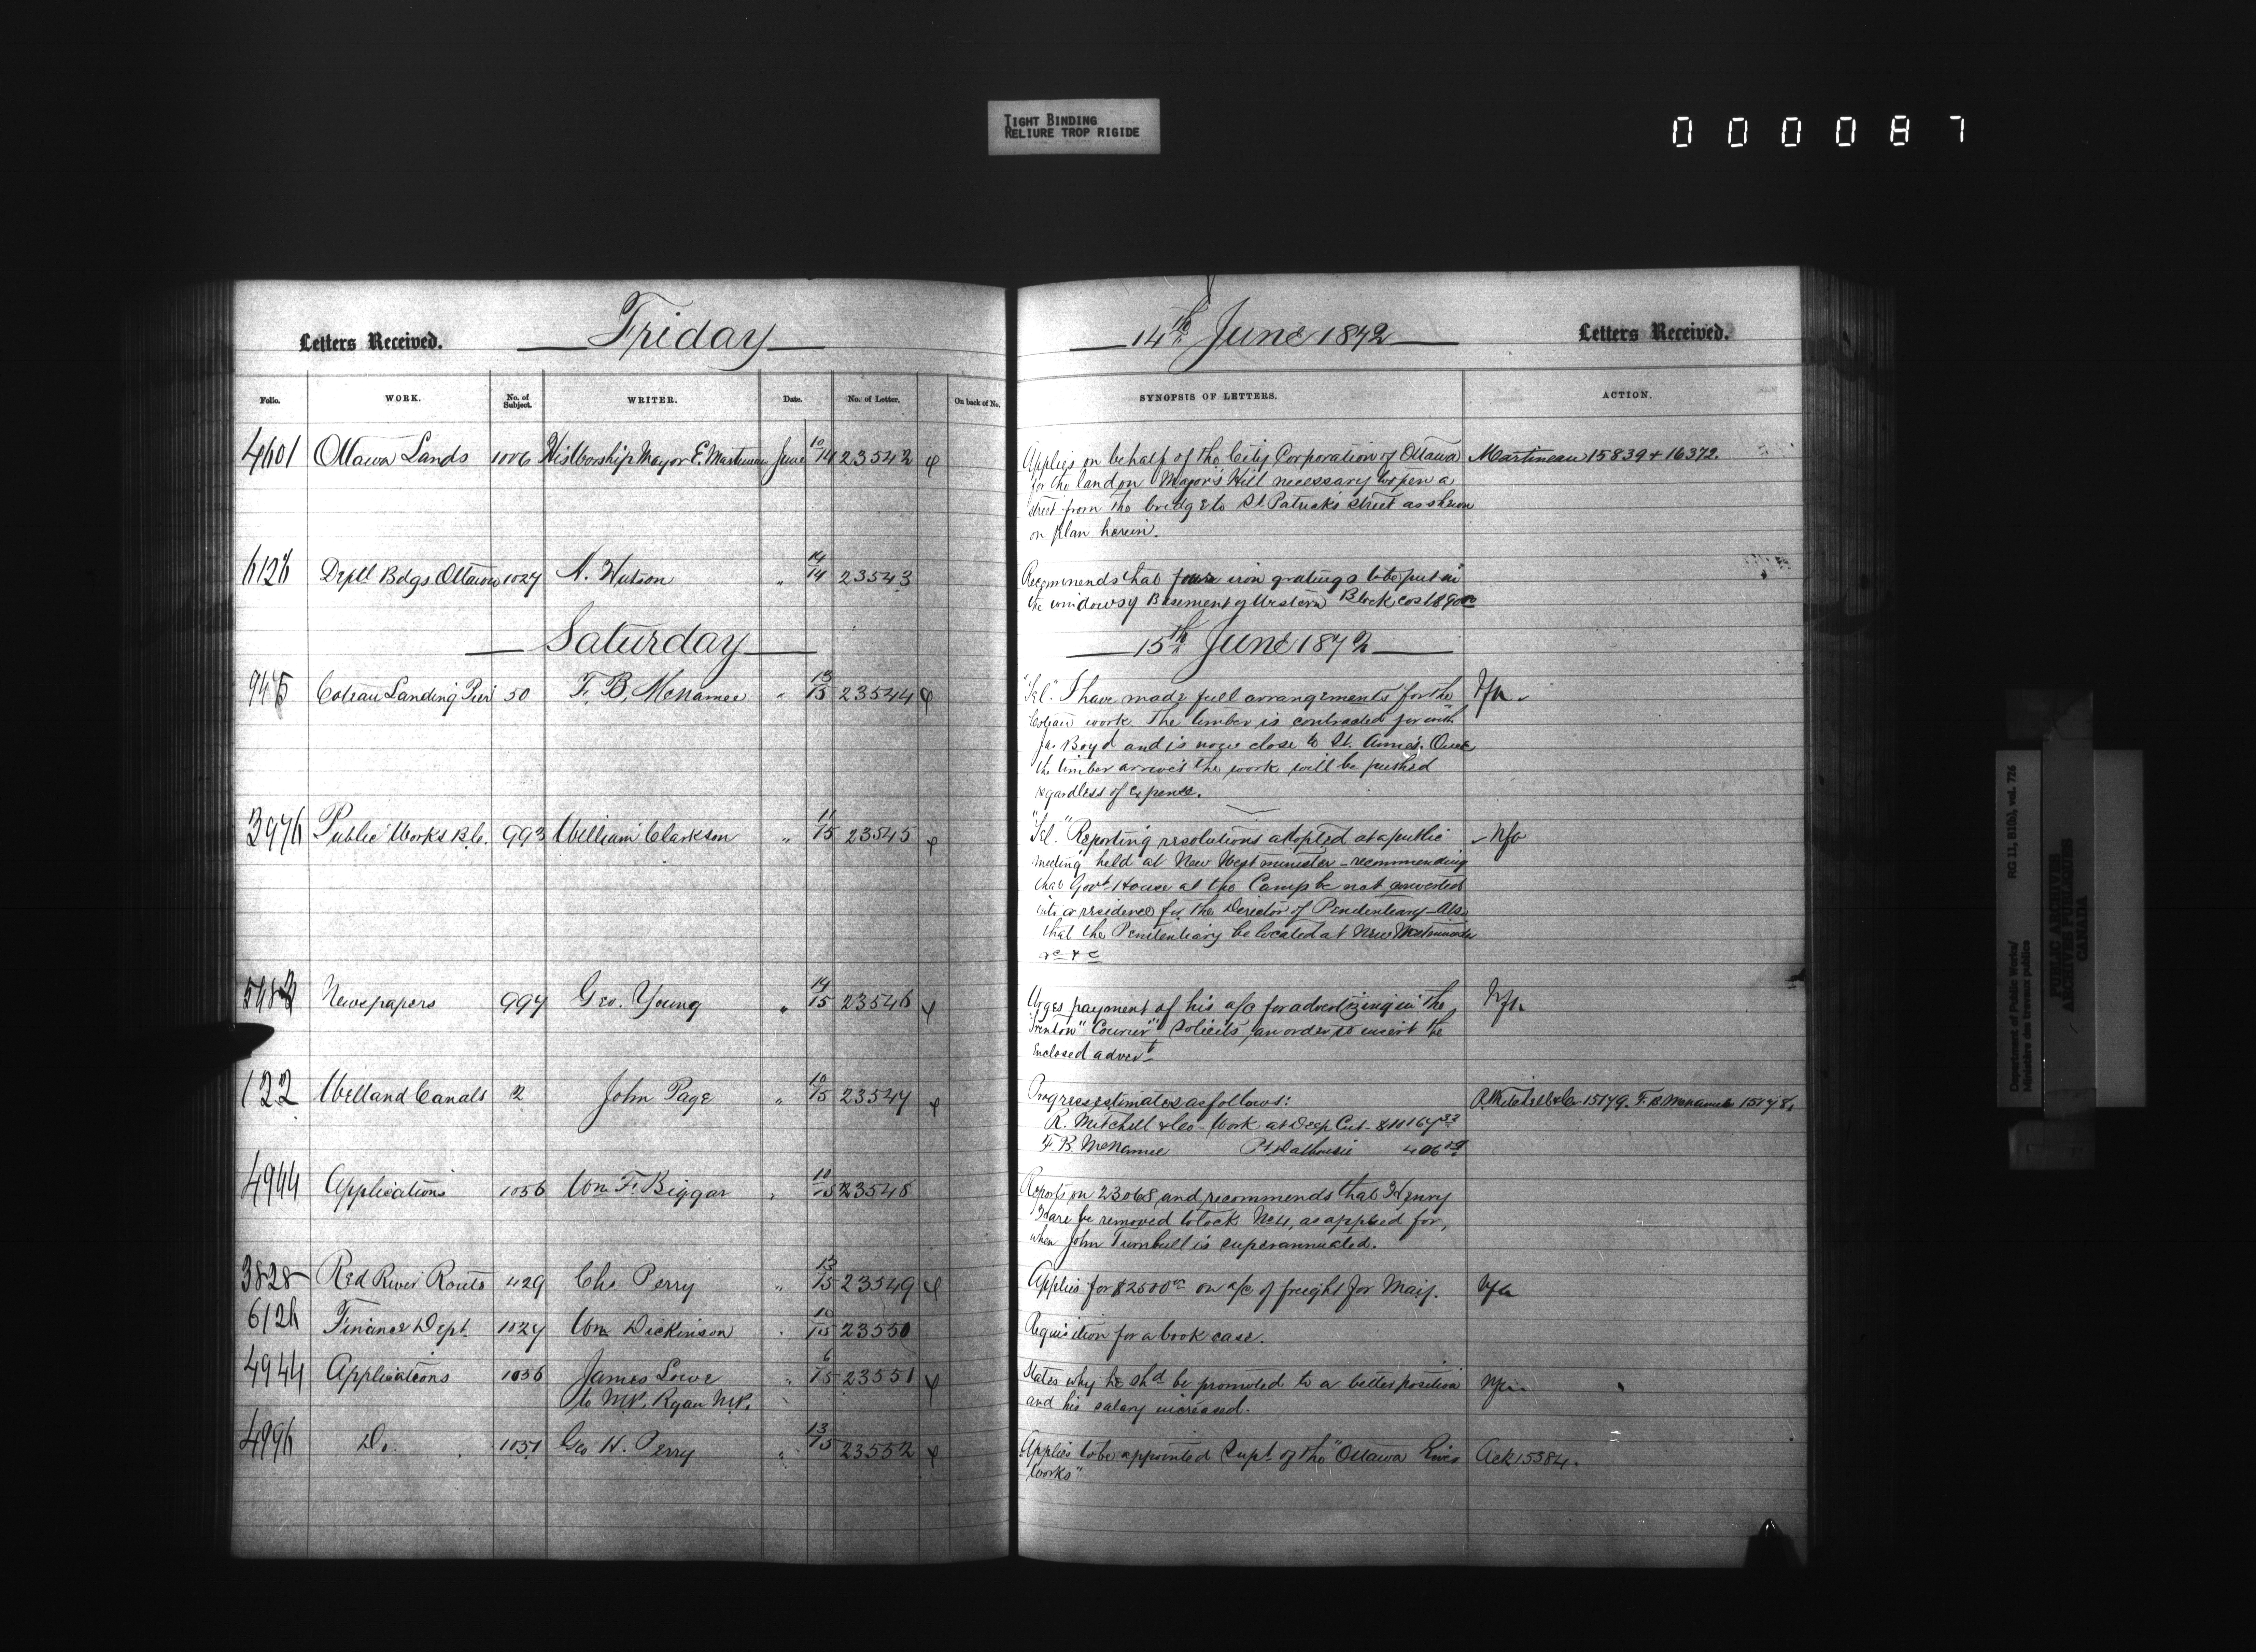 TIGHT BINDING
RELIURE TROP RIGIDE
000087
Letters Received. Friday
14th June 1872 Letters Received.
Folio. WORK. No. of Subject. WRITER. Date. No. of Letter. On back of No.
SYNOPSIS OF LETTERS. ACTION.
4601 Ottawa Lands 1006 His Worship Mayor E. Martineau June 10/14 23542 φ
Applies on behalf of the City Corporation of Ottawa Martineau 15839 + 16372.
for the land on Major's Hill necessary to open a
street from the bridge to St. Patrick's Street as shewn
on plan herein.
6126 Deptl Bdgs Ottawa 1027 A. Hutson " 14/14 23543
Recommends that four iron gratings be put in
the windows of Basement of Western Block, cost $90.00
Saturday
15th June 1872
9475 Coteau Landing Pier 50 F. B. McNamee " 13/15 23544 φ
"Tel." I have made full arrangements for the Nfa.
Coteau work. The timber is contracted for with
Jas Boyd and is now close to St. Anne's. Once
the timber arrives the work will be pushed
regardless of expense.
3976 Public Works B.C. 993 William Clarkson " 11/15 23545 φ
"Tel." Reporting resolutions adopted at a public Nfa
meeting held at New Westminster - recommending
that Govt. House at the Camp be not converted
into a residence for the Director of Penitentiary - Also
that the Penitentiary be located at New Westminster
&c &c
Newspapers 997 Geo. Young " 14/15 23546 φ
Urges payment of his a/c for advertizing in the Nfa
Trenton "Courier" Solicits an order to insert the
Enclosed advert
122 Welland Canals 2 John Page " 10/15 23547 φ
Progress estimates as follows: R. Mitchell & Co 15179. F. B. McNamee 15178.
R. Mitchell & Co - Work at Deep Cut - $10167.33
F. B. McNamee Pt Dalhousie 406
4944 Applications 1056 Wm. F. Biggar " 10/15 23548
Reports on 23068 and recommends that Henry
Hare be removed to lock No 4, as applied for,
when John Turnbull is superannuated.
3828 Red River Route 429 Chs Perry " 13/15 23549 φ
Applies for $2500.00 on a/c of freight for May. Nfa
6126 Finance Dept. 1027 Wm Dickinson " 10/15 23550
Requisition for a book case.
4944 Applications 1056 James Lowe " 6/15 23551 φ
to M.P. Ryan M.P.
States why he shd be promoted to a better position Nfa
and his salary increased.
4996 Do. 1057 Geo H. Perry " 13/15 23552 φ
Applies to be appointed Supt. of the "Ottawa River Ack 15384.
Works"
Department of Public Works/
Ministère des travaux publics
RG 11, B1(b), vol. 726
PUBLIC ARCHIVES
ARCHIVES PUBLIQUES
CANADA